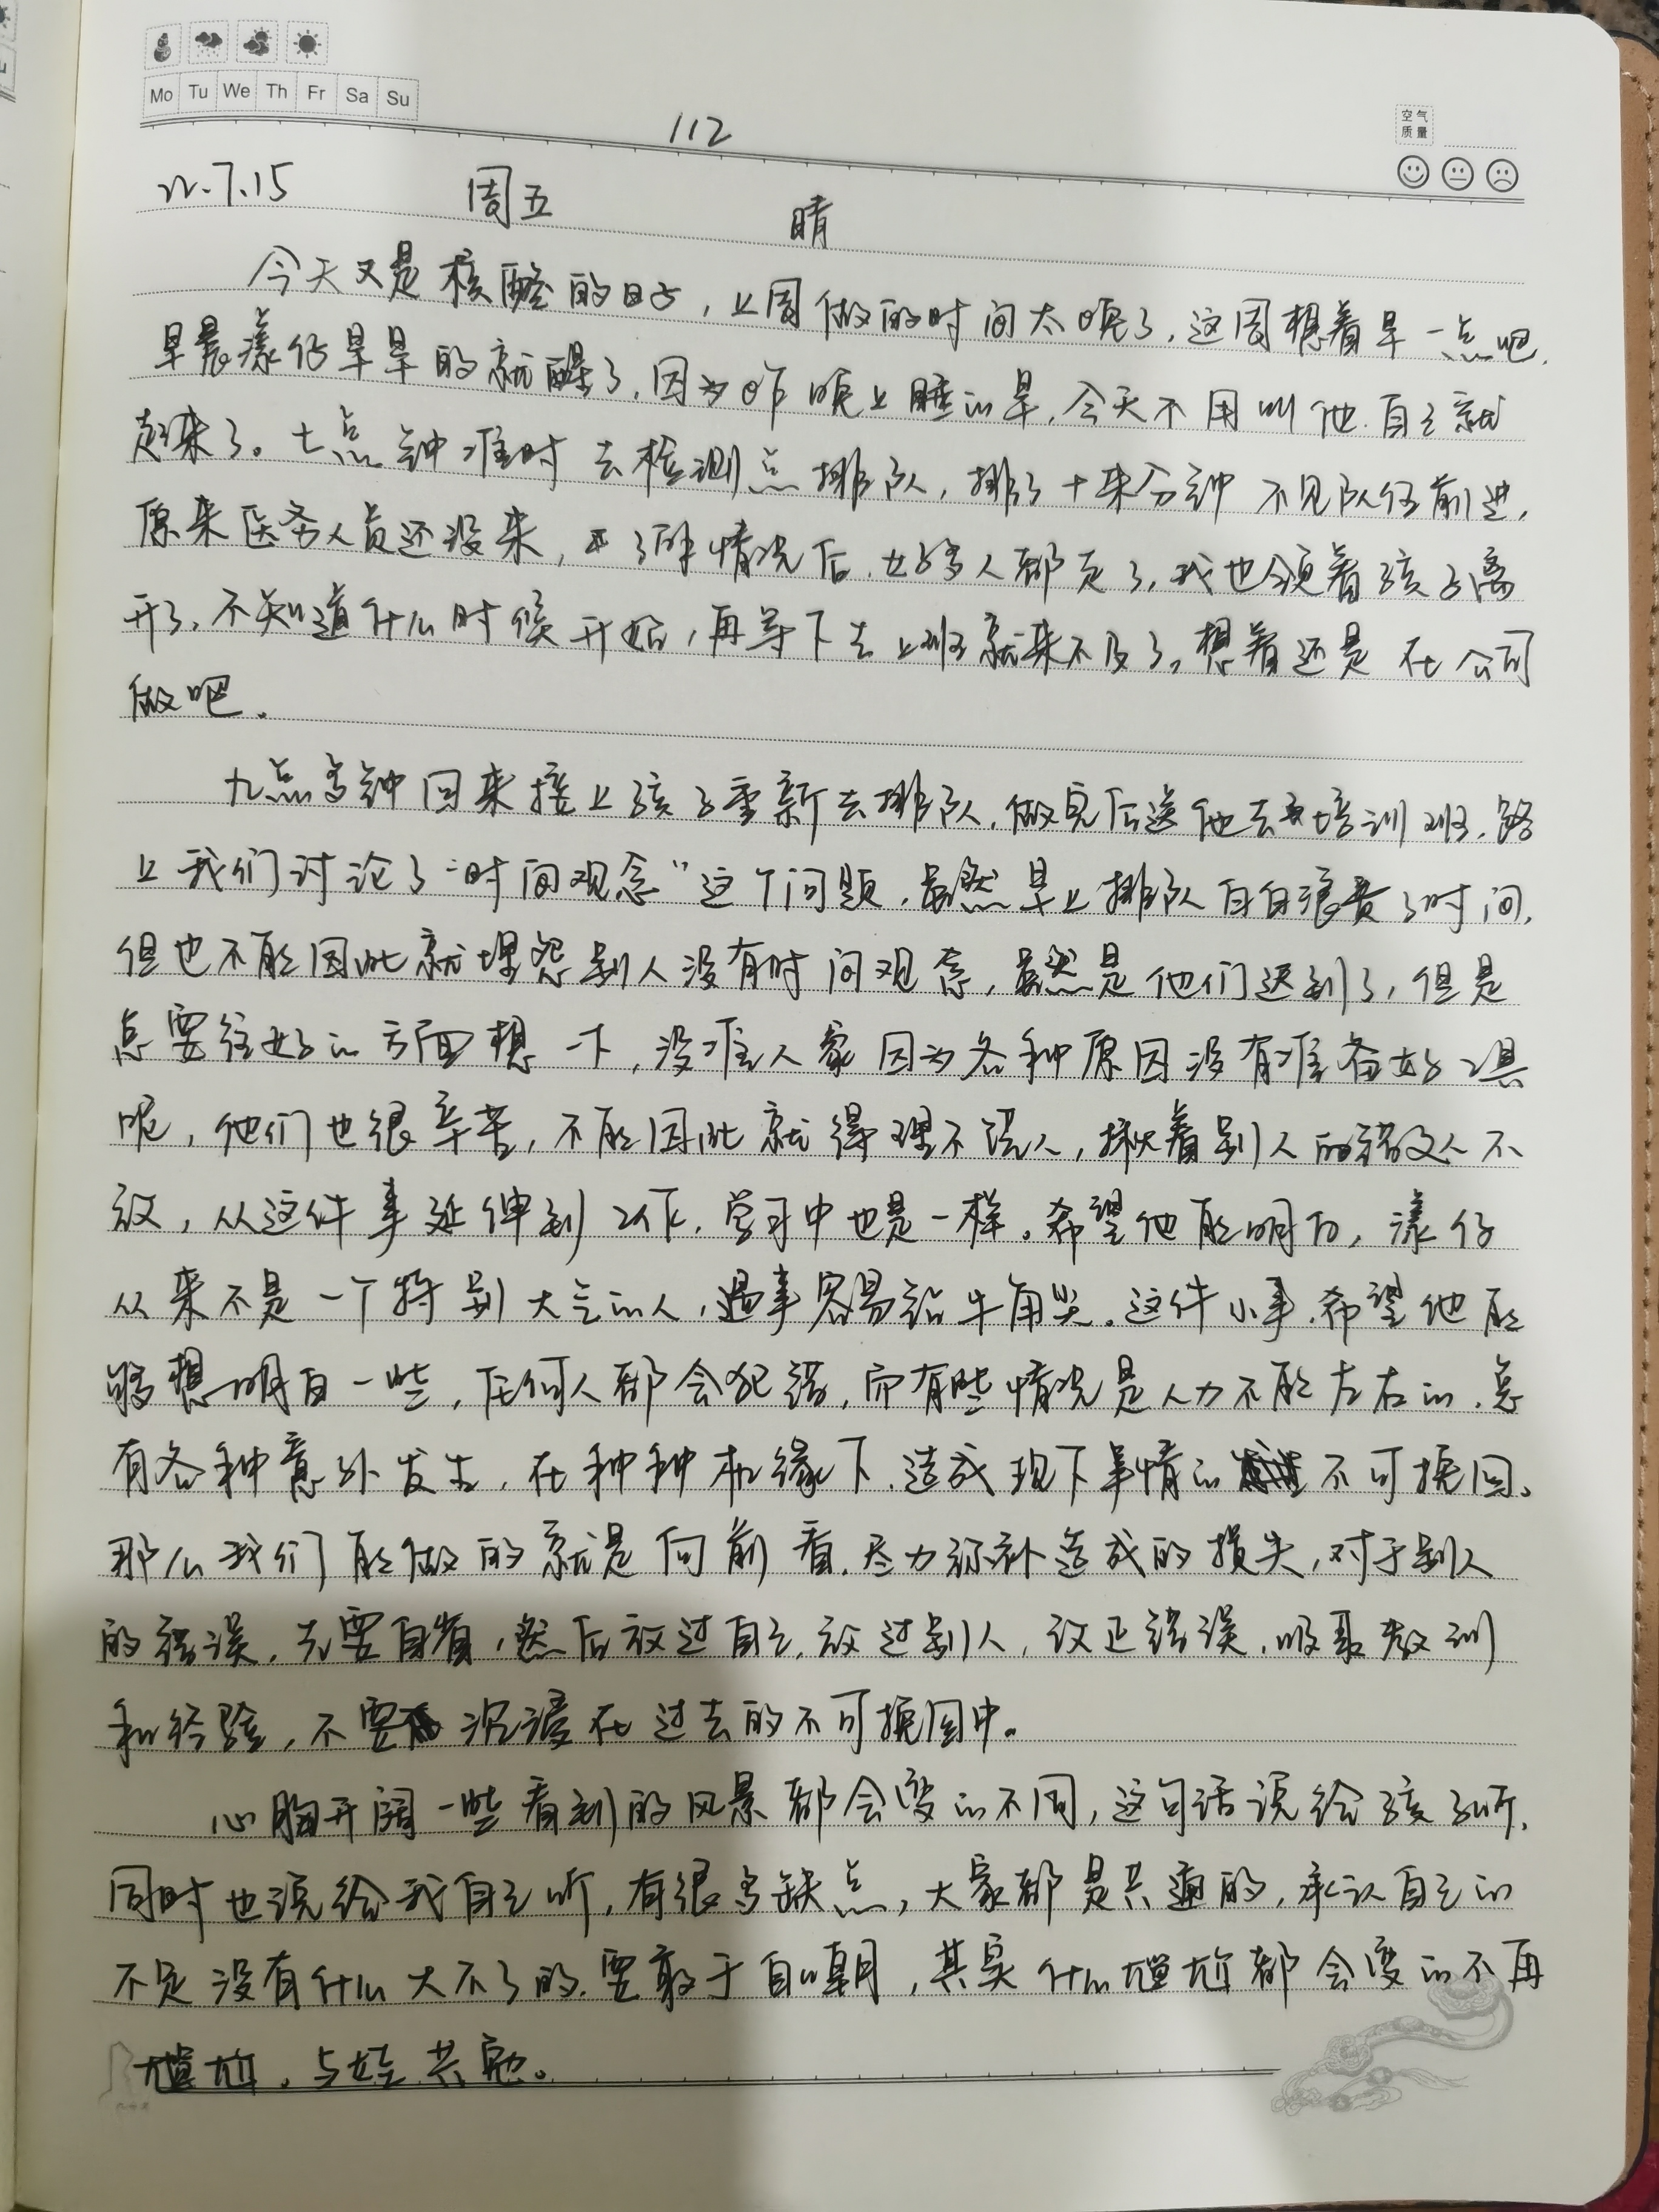 Mo Tu We Th Fr Sa Su
112
空气
质量
22.7.15 周五 晴
今天又是核酸的日子，上周做的时间太晚了，这周想着早一点吧，
早晨漾仔早早的就醒了，因为昨晚上睡的早，今天不用叫他，自己就
起来了。七点钟准时去检测点排队，排了十来分钟不见队伍前进，
原来医务人员还没来，了解情况后，好多人都走了，我也领着孩子离
开了，不知道什么时候开始，再等下去上班就来不及了，想着还是在公司
做吧。
九点多钟回来接上孩子重新去排队，做完后送他去培训班，路
上我们讨论了“时间观念”这个问题，虽然早上排队白白浪费了时间，
但也不能因此就埋怨别人没有时间观念，虽然是他们迟到了，但是
总要往好的方面想一下，没准人家因为各种原因没有准备好工具
呢，他们也很辛苦，不能因此就得理不饶人，揪着别人的错处不
放，从这件事延伸到工作，学习中也是一样。希望他能明白，漾仔
从来不是一个特别大气的人，遇事容易钻牛角尖。这件小事，希望他能
够想明白一些，任何人都会犯错，而有些情况是人力不能左右的，总
有各种意外发生，在种种机缘下，造成现下事情的不可挽回。
那么我们能做的就是向前看，尽力弥补造成的损失，对于别人
的错误，先要自省，然后放过自己，放过别人，改正错误，吸取教训
和经验，不要沉浸在过去的不可挽回中。
心胸开阔一些看到的风景都会变的不同，这句话说给孩子听，
同时也说给我自己听，有很多缺点，大家都是共通的，承认自己的
不足没有什么大不了的，要敢于自嘲，其实什么尴尬都会变的不再
尴尬，与娃共勉。